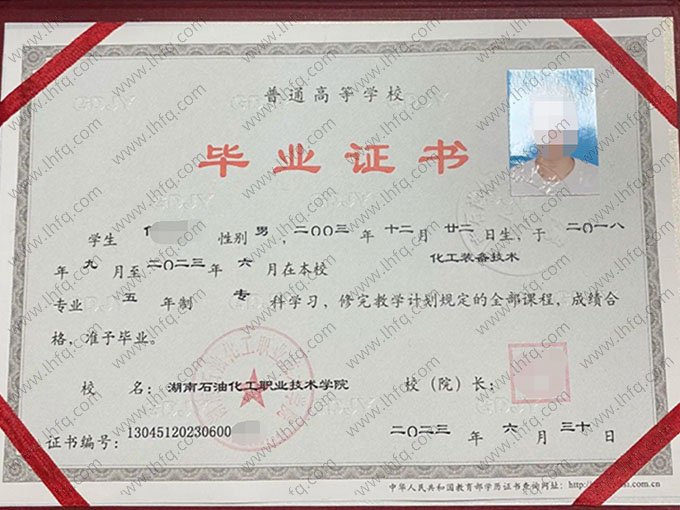 普通高等学校
毕业证书
学生 性别 男，二〇〇三 年 十二月 廿二 日生，于 二〇一八
年 九 月至二〇二三年 六 月在本校 化工装备技术
专业 五 年制 专 科学习，修完教学计划规定的全部课程，成绩合
格，准予毕业。
校 名：湖南石油化工职业技术学院 校（院）长：
证书编号：13045120230600
二〇二三 年 六 月 三十 日
中华人民共和国教育部学历证书查询网址：
www.lhfq.com